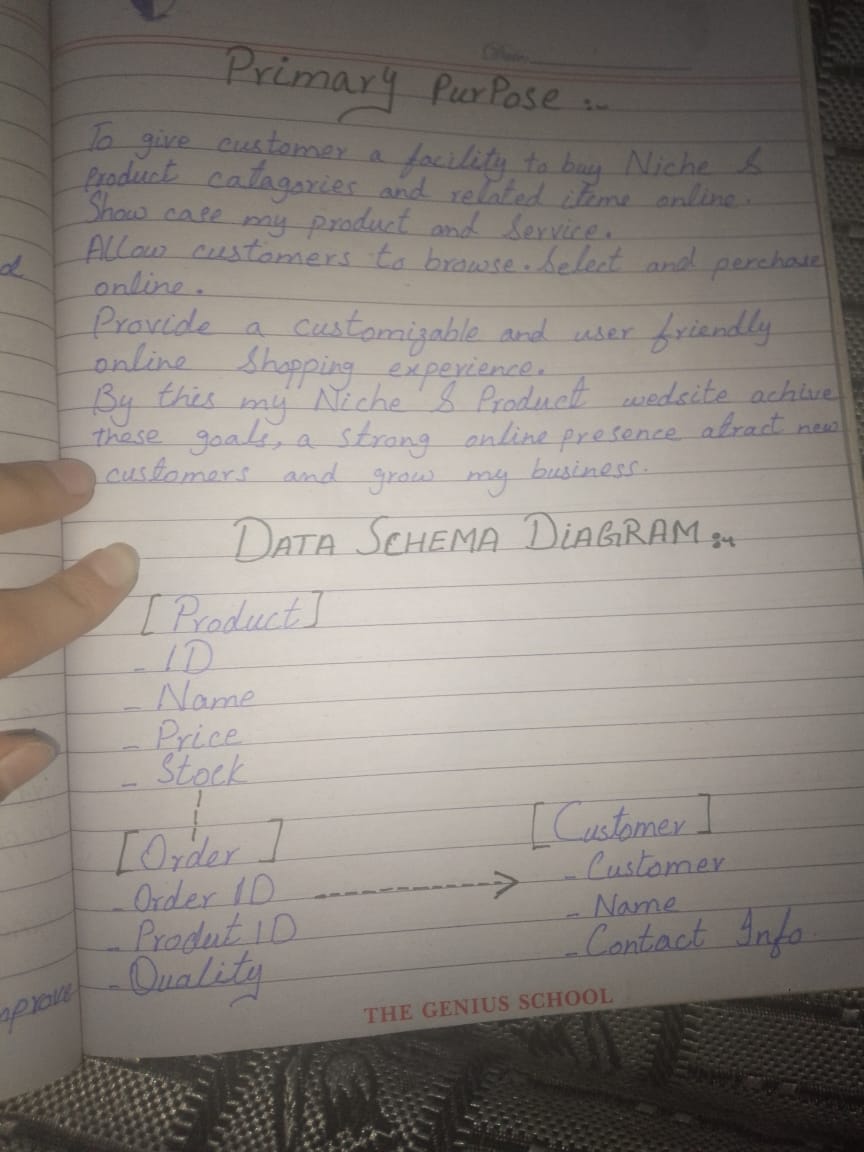 Primary PurPose :-
To give customer a facility to buy Niche &
Product catagories and related iteme online.
Show case my product and Service.
Allow customers to browse. Select and perchase
online.
Provide a customizable and user friendly
online Shopping experience.
By this my Niche & Product wedsite achive
these goals, a strong online presence atract new
customers and grow my business.
DATA SCHEMA DIAGRAM :-
[Product]
- ID
- Name
- Price
- Stock
[Order]
- Order ID
- Produt ID
- Quality
[Customer]
- Customer
- Name
- Contact Info
THE GENIUS SCHOOL